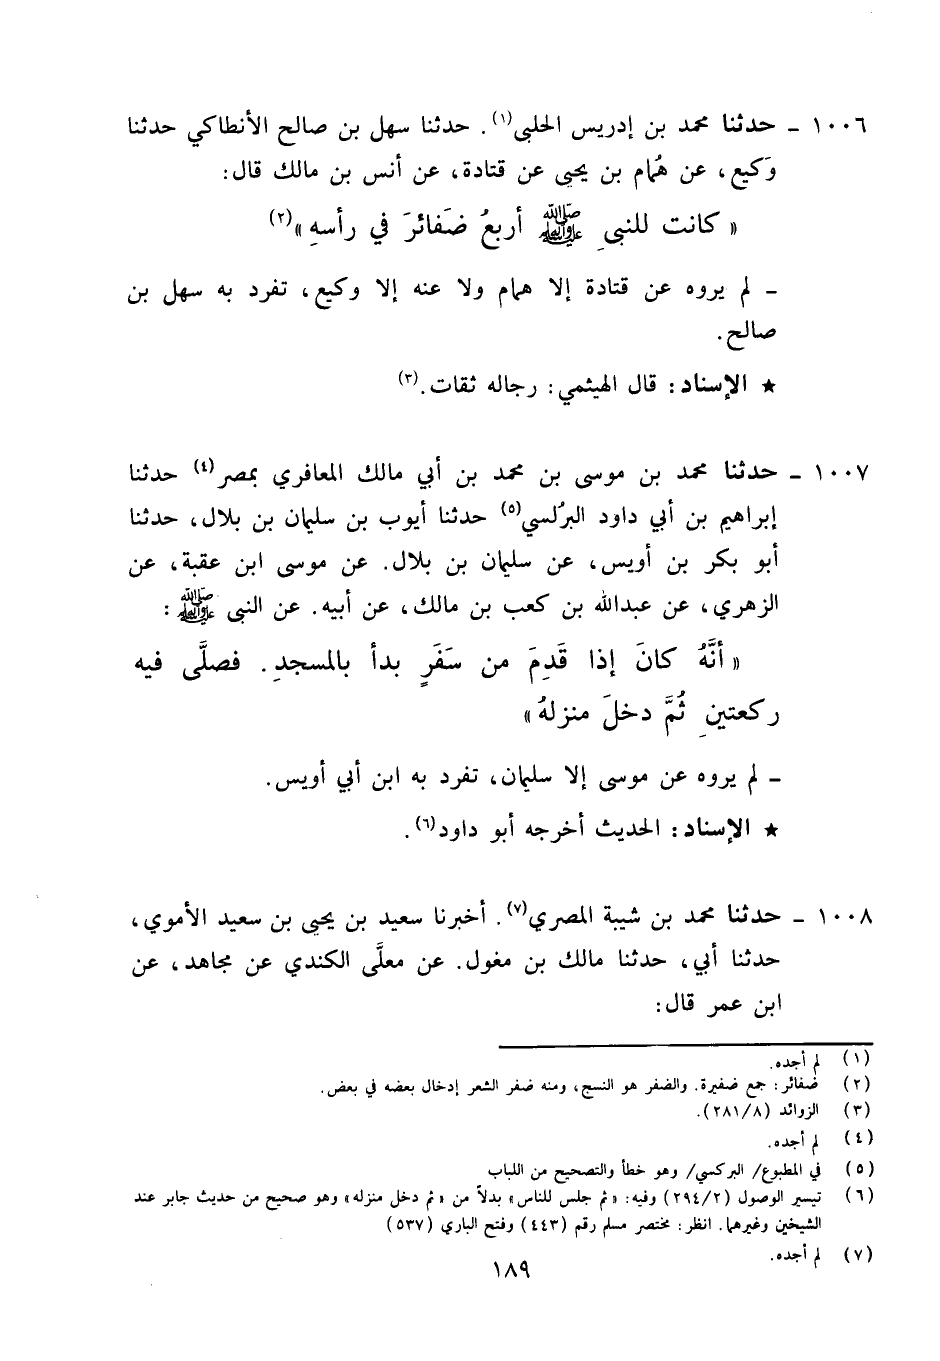 ١٠٠٦ ـ حدثنا محمد بن إدريس الحلبي(١). حدثنا سهل بن صالح الأنطاكي حدثنا
وَكيع، عن هُمام بن يحيى عن قتادة، عن أنس بن مالك قال:
« كانت للنبيِ ﷺ أربعُ ضَفائرَ في رأسهِ »(٢)
ـ لم يروه عن قتادة إلا همام ولا عنه إلا وكيع، تفرد به سهل بن
صالح.
★ الإسناد: قال الهيثمي: رجاله ثقات.(٣)
١٠٠٧ ـ حدثنا محمد بن موسى بن محمد بن أبي مالك المعافري بمصر(٤) حدثنا
إبراهيم بن أبي داود البرُلسي(٥) حدثنا أيوب بن سليمان بن بلال، حدثنا
أبو بكر بن أويس، عن سليمان بن بلال. عن موسى ابن عقبة، عن
الزهري، عن عبدالله بن كعب بن مالك، عن أبيه. عن النبي ﷺ :
« أنَّهُ كانَ إذا قَدِمَ من سَفَرٍ بدأ بالمسجدِ. فصلَّى فيه
ركعتينِ ثُمَّ دخلَ منزلهُ »
ـ لم يروه عن موسى إلا سليمان، تفرد به ابن أبي أويس.
★ الإسناد: الحديث أخرجه أبو داود(٦).
١٠٠٨ ـ حدثنا محمد بن شيبة المصري(٧). أخبرنا سعيد بن يحيى بن سعيد الأموي،
حدثنا أبي، حدثنا مالك بن مغول. عن معلَّى الكندي عن مجاهد، عن
ابن عمر قال:
(١) لم أجده.
(٢) ضفائر: جمع ضفيرة. والضفر هو النسج، ومنه ضفر الشعر إدخال بعضه في بعض.
(٣) الزوائد (٢٨١/٨).
(٤) لم أجده.
(٥) في المطبوع/ البركسي/ وهو خطأ والتصحيح من اللباب
(٦) تيسير الوصول (٢٩٤/٢) وفيه: « ثم جلس للناس » بدلاً من « ثم دخل منزله » وهو صحيح من حديث جابر عند
الشيخين وغيرهما. انظر: مختصر مسلم رقم (٤٤٣) وفتح الباري (٥٣٧)
(٧) لم أجده.
١٨٩